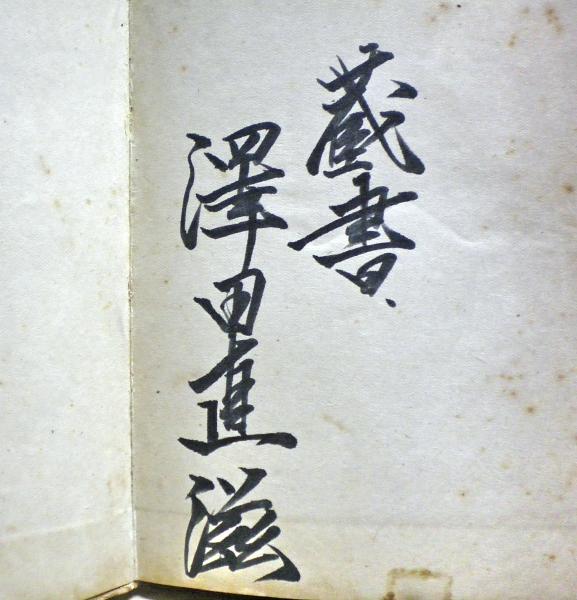 蔵書、
澤田直滋